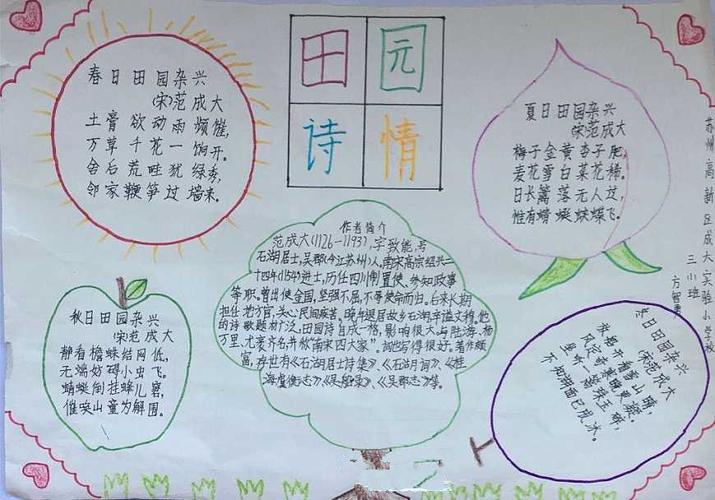 田园
诗情
春日田园杂兴
(宋)范成大
土膏欲动雨频催,
万草千花一饷开。
舍后荒畦犹绿秀,
邻家鞭笋过墙来。
夏日田园杂兴
(宋)范成大
梅子金黄杏子肥,
麦花雪白菜花稀。
日长篱落无人过,
惟有蜻蜓蛱蝶飞。
作者简介
范成大(1126-1193),字致能,号
石湖居士,吴郡(今江苏苏州)人,南宋高宗绍兴二
十四年(1154)进士,历任四川制置使、参知政事
等职,曾出使金国,坚强不屈,不辱使命而归。后来长期
担任地方官,关心民间疾苦。晚年退居故乡石湖,卒谥文穆。他
的诗歌题材广泛,田园诗自成一格,影响很大,与陆游、杨
万里、尤袤齐名,并称“南宋四大家”。词也写得很好。著作颇
富,存世有《石湖居士诗集》、《石湖词》、《桂
海虞衡志》、《吴船录》、《吴郡志》等。
秋日田园杂兴
宋 范成大
静看檐蛛结网低,
无端妨碍小虫飞。
蜻蜓倒挂蜂儿窘,
催唤山童为解围。
冬日田园杂兴
宋 范成大
放船开看雪山晴,
风定奇寒晚更凝。
坐听一篙珠玉碎,
不知湖面已成冰。
苏州高新区成大实验小学校
三小班